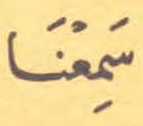 سَمِعْنَا